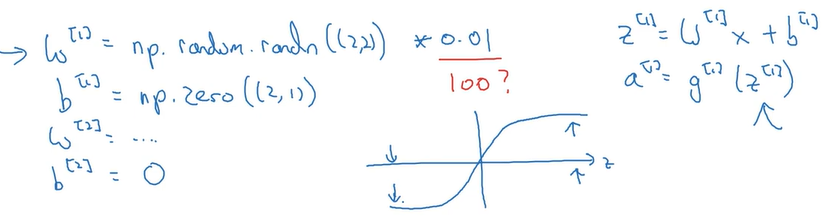 → W^[1] = np.random.randn((2,2)) * 0.01
100?
b^[1] = np.zero((2,1))
W^[2] = ....
b^[2] = 0
z
z^[1] = W^[1] x + b^[1]
a^[1] = g^[1](z^[1])